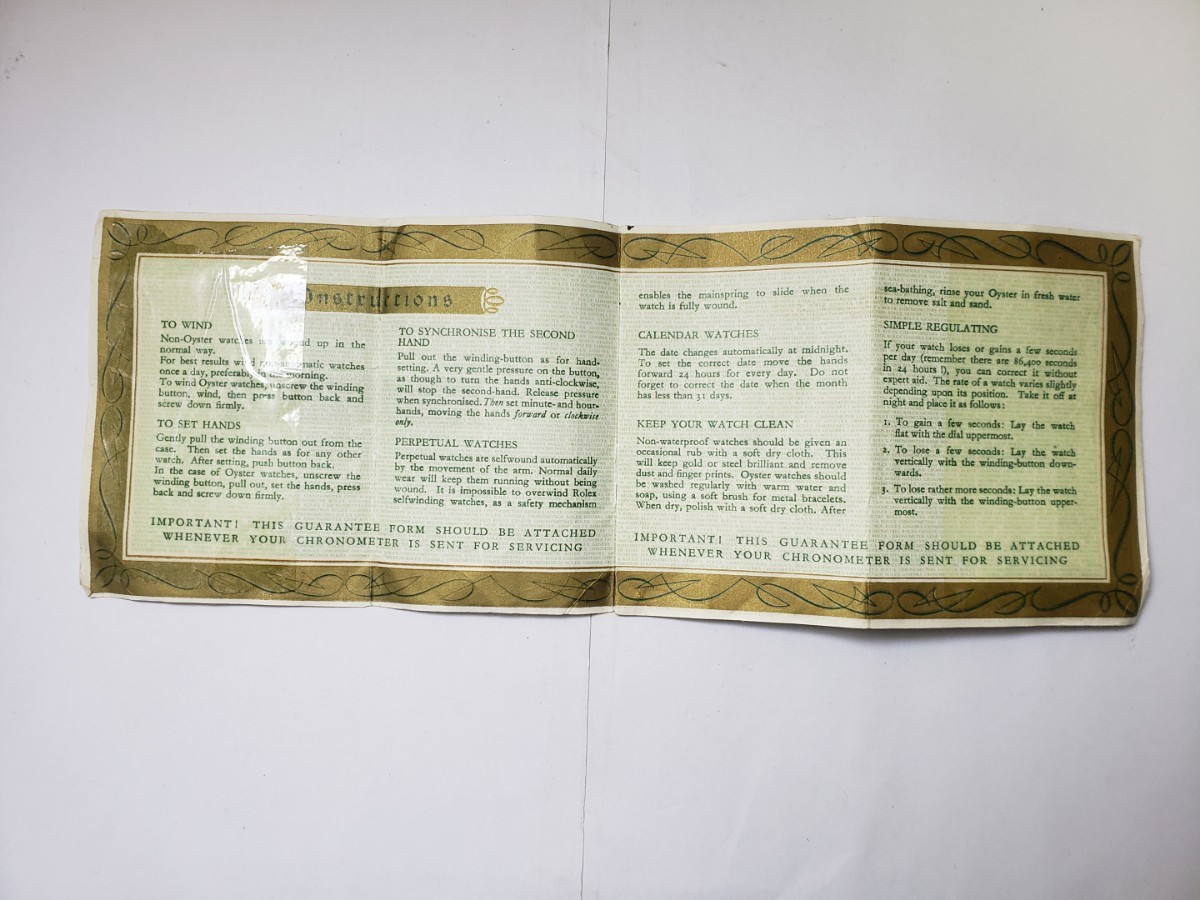 Instructions
TO WIND
Non-Oyster watches up in the
normal way.
For best results watches
once a day, morning.
To wind Oyster watches, unscrew the winding
button, wind, then press button back and
screw down firmly.
TO SET HANDS
Gently pull the winding button out from the
case. Then set the hands as for any other
watch. After setting, push button back.
In the case of Oyster watches, unscrew the
winding button, pull out, set the hands, press
back and screw down firmly.
TO SYNCHRONISE THE SECOND
HAND
Pull out the winding-button as for hand-
setting. A very gentle pressure on the button,
as though to turn the hands anti-clockwise,
will stop the second-hand. Release pressure
when synchronised. Then set minute- and hour-
hands, moving the hands forward or clockwise
only.
PERPETUAL WATCHES
Perpetual watches are selfwound automatically
by the movement of the arm. Normal daily
wear will keep them running without being
wound. It is impossible to overwind Rolex
selfwinding watches, as a safety mechanism
IMPORTANT! THIS GUARANTEE FORM SHOULD BE ATTACHED
WHENEVER YOUR CHRONOMETER IS SENT FOR SERVICING
enables the mainspring to slide when the
watch is fully wound.
CALENDAR WATCHES
The date changes automatically at midnight.
To set the correct date move the hands
forward 24 hours for every day. Do not
forget to correct the date when the month
has less than 31 days.
KEEP YOUR WATCH CLEAN
Non-waterproof watches should be given an
occasional rub with a soft dry cloth. This
will keep gold or steel brilliant and remove
dust and finger prints. Oyster watches should
be washed regularly with warm water and
soap, using a soft brush for metal bracelets.
When dry, polish with a soft dry cloth. After
sea-bathing, rinse your Oyster in fresh water
to remove salt and sand.
SIMPLE REGULATING
If your watch loses or gains a few seconds
per day (remember there are 86,400 seconds
in 24 hours!), you can correct it without
expert aid. The rate of a watch varies slightly
depending upon its position. Take it off at
night and place it as follows:
1. To gain a few seconds: Lay the watch
flat with the dial uppermost.
2. To lose a few seconds: Lay the watch
vertically with the winding-button down-
wards.
3. To lose rather more seconds: Lay the watch
vertically with the winding-button upper-
most.
IMPORTANT! THIS GUARANTEE FORM SHOULD BE ATTACHED
WHENEVER YOUR CHRONOMETER IS SENT FOR SERVICING